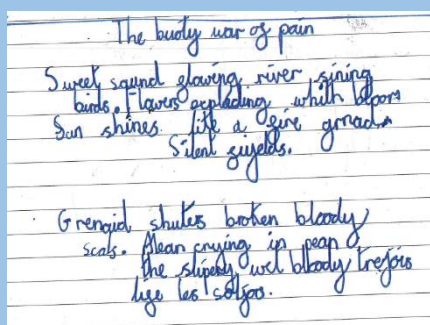 The buoty war of pain
Sweet sound glowing river sining
birds. Flowers exploading whith bloom
Sun shines like a fire grnad.
Silent fiyelds.
Grenaid shuters broken bloody
scals. Mean crying in pean
the slipery wet bloody trejois
lige les soljos.